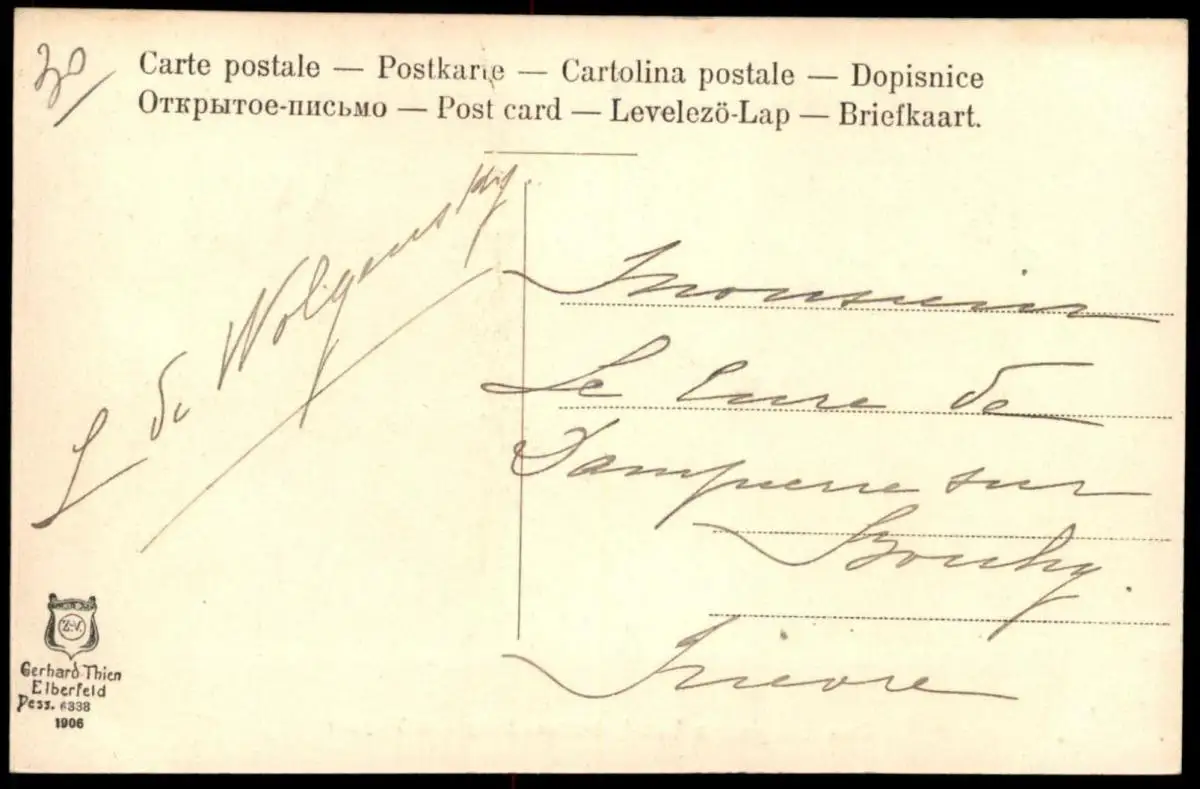 30
Carte postale — Postkarte — Cartolina postale — Dopisnice
Открытое-письмо — Post card — Levelezö-Lap — Briefkaart.
L de Wolgensky
Monsieur
Le Cure de
Dampierre sur
Bouhy.
Nievre
Z.V.
Gerhard Thien
Elberfeld
Dess. 6338
1906